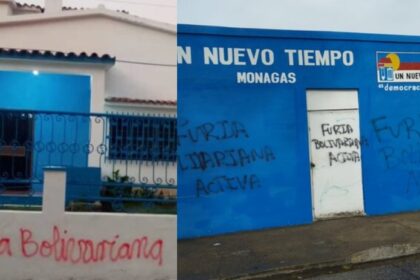 a Bolivariana
UN NUEVO TIEMPO
MONAGAS
UN NUEV
democrac
FURIA
BOLIVARIANA
ACTIVA
FURIA
BOLIVARIANA
ACTIVA